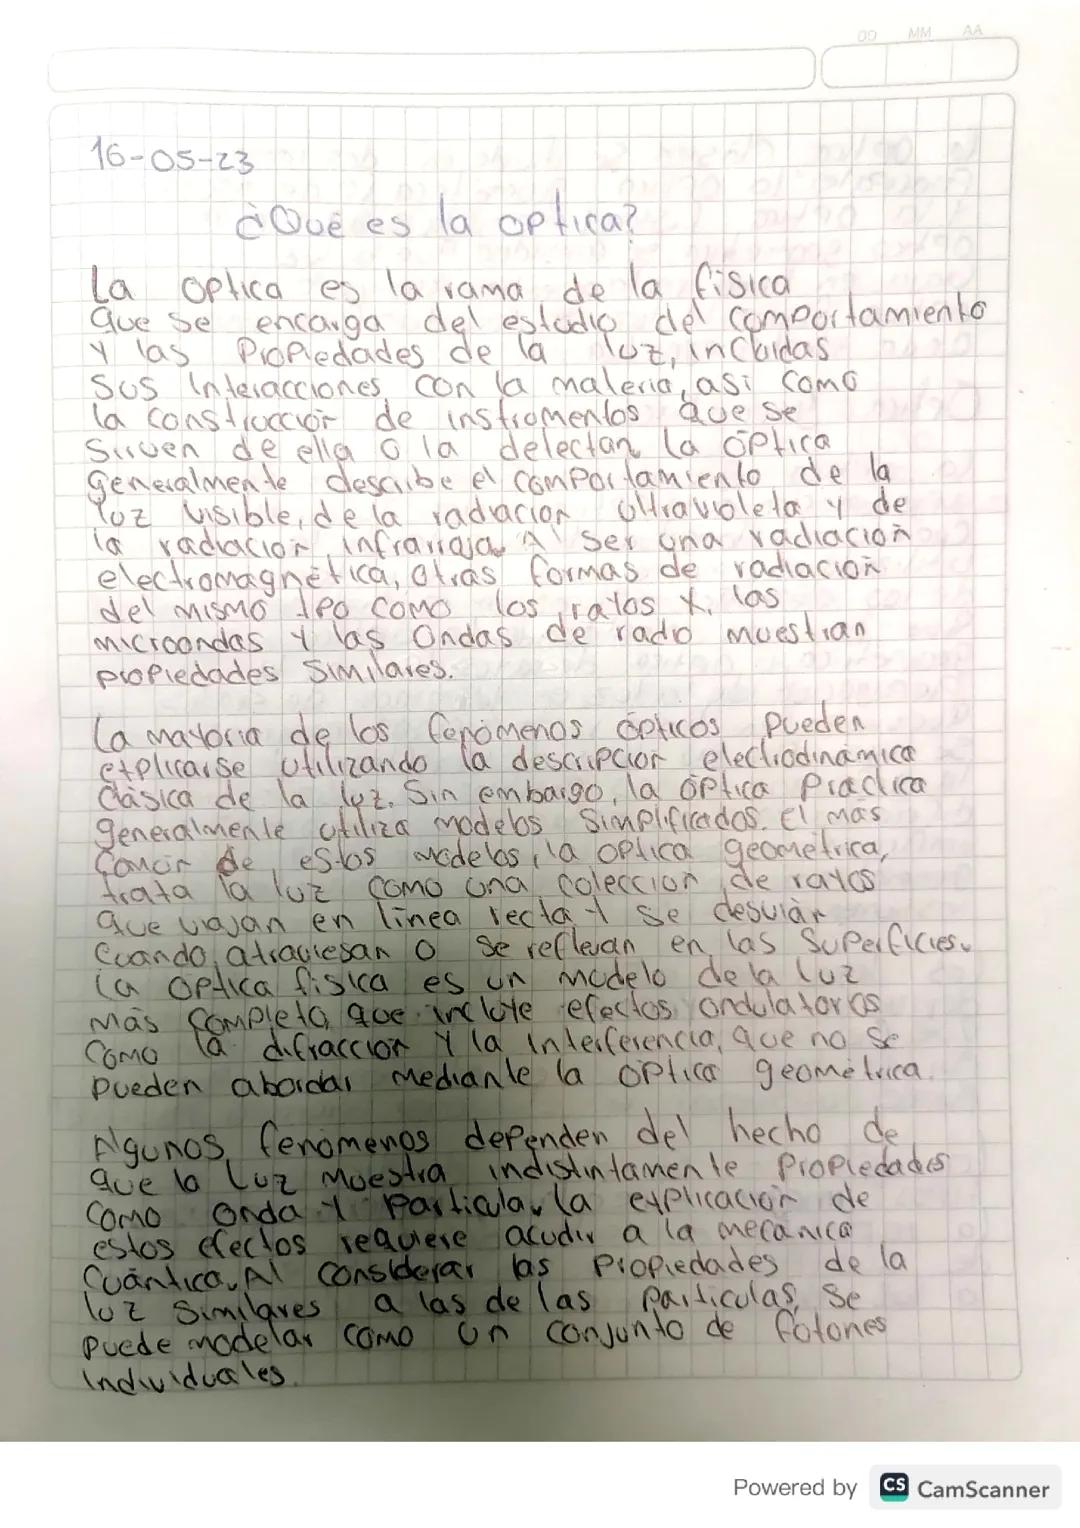 DD MM AA
16-05-23
¿Qué es la optica?
La optica es la rama de la física
que se encarga del estudio del comportamiento
y las Propiedades de la luz, incluidas
sus interacciones con la materia, así como
la construcción de instrumentos que se
sirven de ella o la detectan. La óptica
generalmente describe el comportamiento de la
luz visible, de la radiación ultravioleta y de
la radiación infrarroja. Al ser una radiación
electromagnética, otras formas de radiación
del mismo tipo como los rayos X, las
microondas y las ondas de radio muestran
propiedades similares.
La mayoría de los fenómenos ópticos pueden
explicarse utilizando la descripción electrodinámica
clásica de la luz. Sin embargo, la óptica Practica
generalmente utiliza modelos simplificados. El más
común de estos modelos, la optica geométrica,
trata la luz como una colección de rayos
que viajan en línea recta y se desvían
cuando atraviesan o se reflejan en las superficies.
La optica física es un modelo de la luz
más completo, que incluye efectos ondulatorios
como la difracción y la interferencia, que no se
pueden abordar mediante la óptica geométrica.
Algunos fenómenos dependen del hecho de
que la luz muestra indistintamente Propiedades
como onda y partícula, la explicación de
estos efectos requiere acudir a la mecánica
cuántica. Al considerar las propiedades de la
luz similares a las de las partículas, se
puede modelar como un conjunto de fotones
individuales.
Powered by CS CamScanner